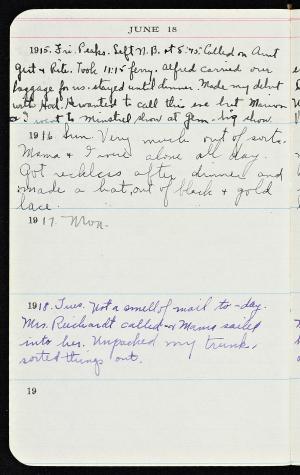 JUNE 18
1915. Fri. Peaks. Left N.B. at 5:45. Called on Aunt
Gert & Rite. Took 11:15 ferry. Alfred carried our
baggage for us. stayed until dinner. Made my debut
with Hod. He wanted to call this eve but Marion
& I went to Minstrel show at Gem. big show.
1916 Sun. Very much out of sorts.
Mama & I were alone all day.
Got reckless after dinner and
made a hat, out of black & gold
lace.
1917. Mon.
1918. Tues. Not a smell of mail to-day.
Mrs. Reichardt called & Mama sailed
into her. Unpacked my trunk,
sorted things out.
19